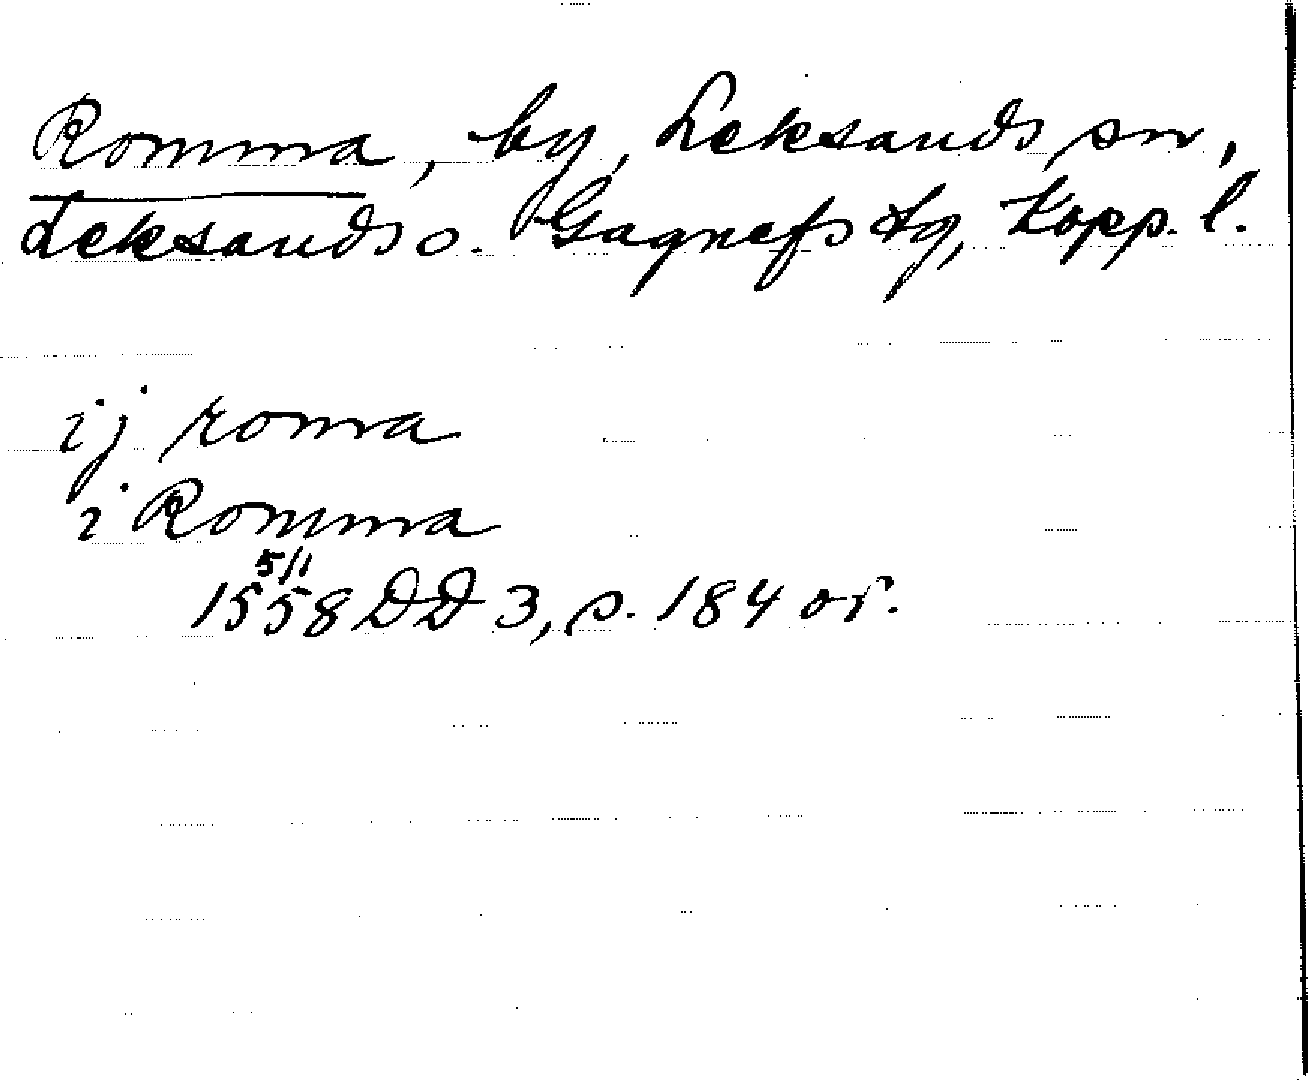 Romma, by, Leksands sn,
Leksands o. Gagnefs tg, Kopp. l.
ij roma
i Romma
5/1
1558 DD 3, s. 184 or.